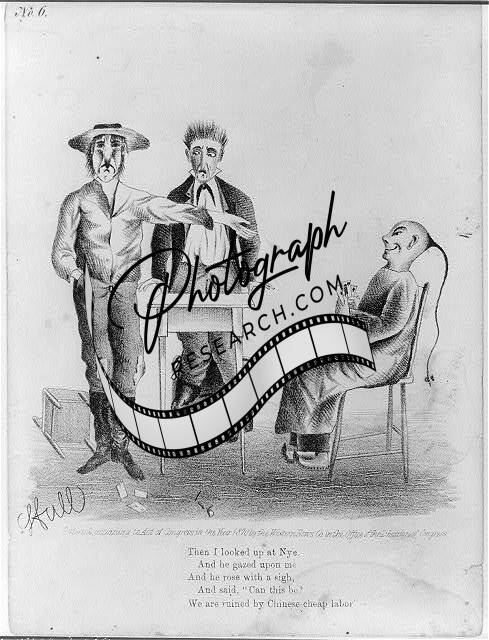 No. 6.
Photograph
RESEARCH.COM
Hull
according to Act of Congress in the Year 1870 by the Western News Co in the Office of the Librarian of Congress
Then I looked up at Nye,
And he gazed upon me
And he rose with a sigh,
And said, "Can this be?
We are ruined by Chinese cheap labor